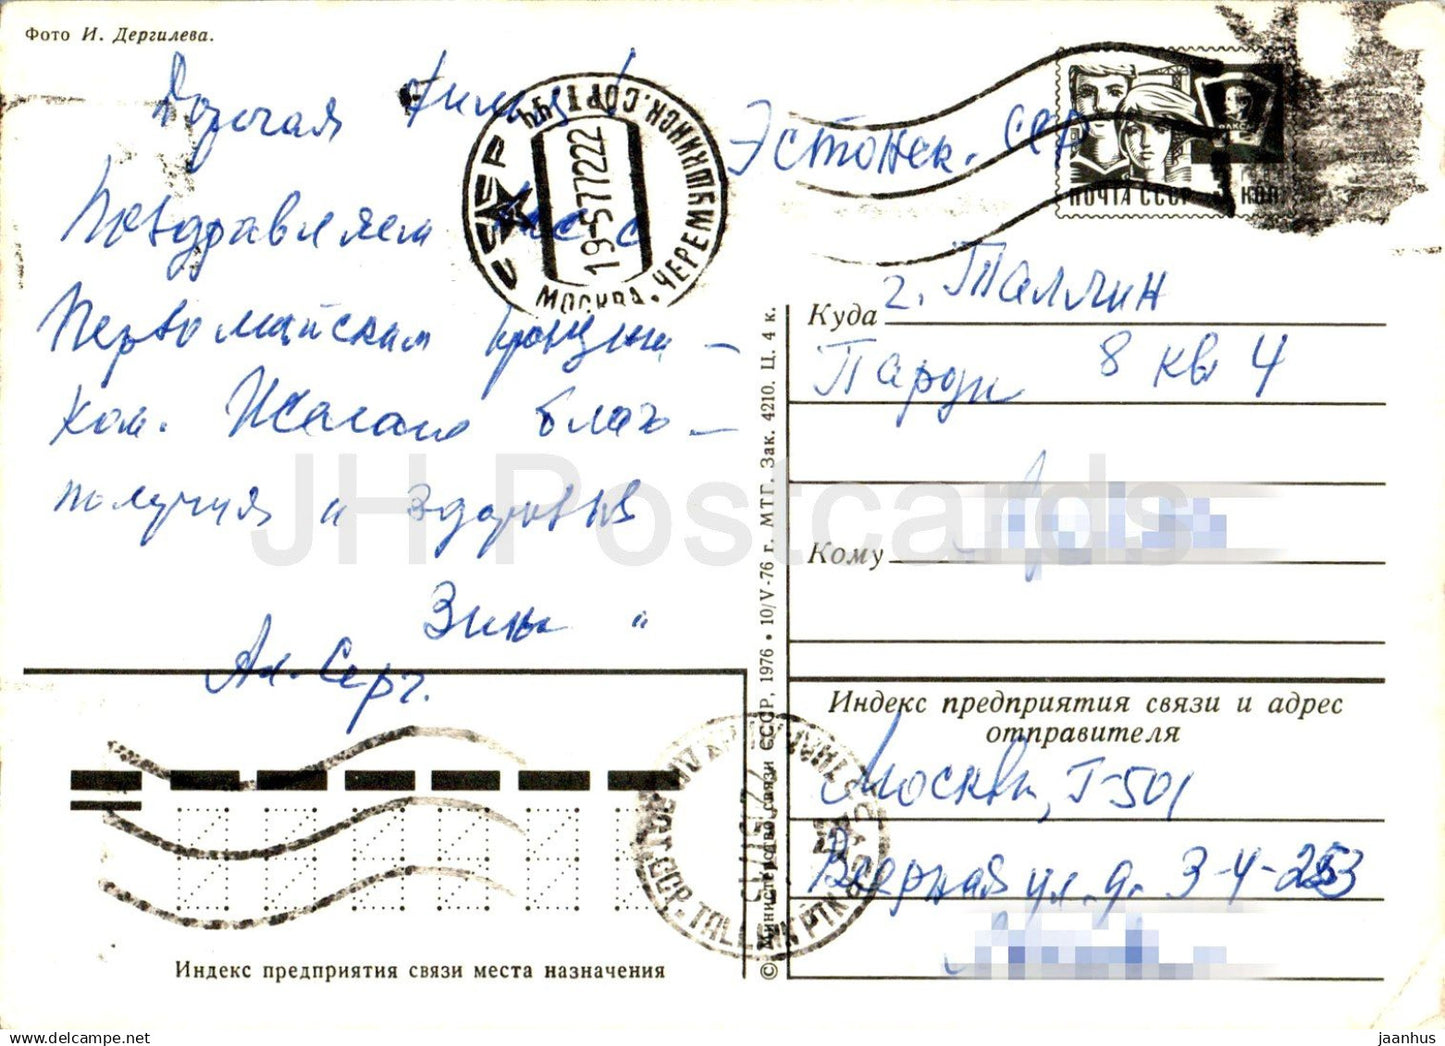 Фото И. Дергилева.
Дорогая
Поздравляем Вас с
Первомайским праздни-
ком. Желаем благо-
получия и здоровья
Зина "
Ал. Серг.
СССР
МОСКВА • ЧЕРЕМУШКИНСК. СОРТ
19-577222
Эстонск. ССР
ПОЧТА СССР
КОП
Куда г. Таллин
Парди 8 кв 4
Кому
Индекс предприятия связи и адрес
отправителя
Москва, Г-501
ул. д. 3-4-253
© Министерство связи СССР, 1976 • 10/V-76 г. МТГ. Зак. 4210. Ц. 4 к.
Индекс предприятия связи места назначения
JH Postcards
delcampe.net
jaanhus